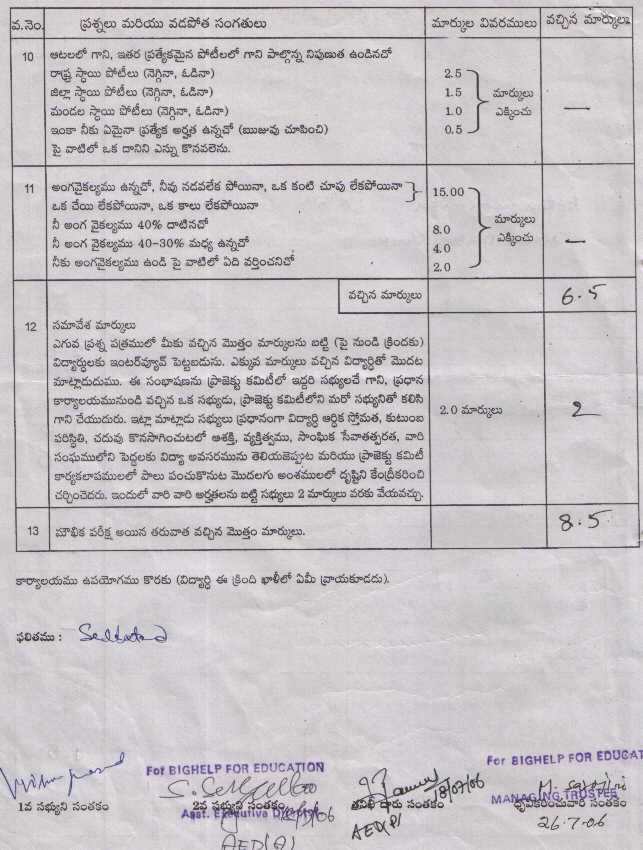 వ.నెం. ప్రశ్నలు మరియు వడపోత సంగతులు మార్కుల వివరములు వచ్చిన మార్కులు
10 ఆటలలో గాని, ఇతర ప్రత్యేకమైన పోటీలలో గాని పాల్గొన్న నిపుణుత ఉండినచో
రాష్ట్ర స్థాయి పోటీలు (నెగ్గినా, ఓడినా) 2.5
జిల్లా స్థాయి పోటీలు (నెగ్గినా, ఓడినా) 1.5 మార్కులు
మండల స్థాయి పోటీలు (నెగ్గినా, ఓడినా) 1.0 ఎక్కించు —
ఇంకా నీకు ఏమైనా ప్రత్యేక అర్హత ఉన్నచో (ఋజువు చూపించి) 0.5
పై వాటిలో ఒక దానిని ఎన్ను కొనవలెను.
11 అంగవైకల్యము ఉన్నచో, నీవు నడవలేక పోయినా, ఒక కంటి చూపు లేకపోయినా 15.00
ఒక చేయి లేకపోయినా, ఒక కాలు లేకపోయినా
నీ అంగ వైకల్యము 40% దాటినచో 8.0 మార్కులు
నీ అంగ వైకల్యము 40-30% మధ్య ఉన్నచో 4.0 ఎక్కించు —
నీకు అంగవైకల్యము ఉండి పై వాటిలో ఏది వర్తించనిచో 2.0
వచ్చిన మార్కులు 6.5
12 సమావేశ మార్కులు
ఎగువ ప్రశ్న పత్రములో మీకు వచ్చిన మొత్తం మార్కులను బట్టి (పై నుండి క్రిందకు)
విద్యార్థులకు ఇంటర్‌వ్యూవ్ పెట్టబడును. ఎక్కువ మార్కులు వచ్చిన విద్యార్థితో మొదట
మాట్లాడుదుము. ఈ సంభాషణను ప్రాజెక్టు కమిటీలో ఇద్దరి సభ్యులచే గాని, ప్రధాన
కార్యాలయమునుండి వచ్చిన ఒక సభ్యుడు, ప్రాజెక్టు కమిటీలోని మరో సభ్యునితో కలిసి
గాని చేయుదురు. ఇట్లా మాట్లాడు సభ్యులు ప్రధానంగా విద్యార్థి ఆర్థిక స్తోమత, కుటుంబ 2.0 మార్కులు 2
పరిస్థితి, చదువు కొనసాగించుటలో ఆశక్తి, వ్యక్తిత్వము, సాంఘిక సేవాతత్పరత, వారి
సంఘములోని పెద్దలకు విద్యా అవసరమును తెలియజెప్పుట మరియు ప్రాజెక్టు కమిటీ
కార్యకలాపములలో పాలు పంచుకొనుట మొదలగు అంశములలో దృష్టిని కేంద్రీకరించి
చర్చించెదరు. ఇందులో వారి వారి అర్హతలను బట్టి సభ్యులు 2 మార్కులు వరకు వేయవచ్చు.
13 మౌఖిక పరీక్ష అయిన తరువాత వచ్చిన మొత్తం మార్కులు. 8.5
కార్యాలయము ఉపయోగము కొరకు (విద్యార్థి ఈ క్రింది ఖాళీలో ఏమీ వ్రాయకూడదు).
ఫలితము : Selected
For BIGHELP FOR EDUCATION For BIGHELP FOR EDUCAT
18/07/06 M. Sarojini
MANAGING TRUSTEE
1వ సభ్యుని సంతకం 2వ సభ్యుని సంతకం తనిఖీ దారు సంతకం ధృవీకరించువారి సంతకం
Asst. Executive Director
AED(P) 26.7.06
AED(A)